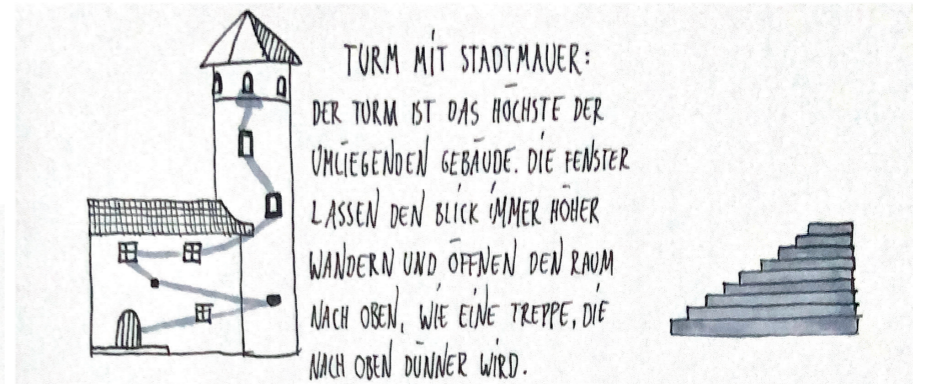 TURM MIT STADTMAUER:
DER TURM IST DAS HÖCHSTE DER
UMLIEGENDEN GEBÄUDE. DIE FENSTER
LASSEN DEN BLICK IMMER HÖHER
WANDERN UND ÖFFNEN DEN RAUM
NACH OBEN, WIE EINE TREPPE, DIE
NACH OBEN DÜNNER WIRD.